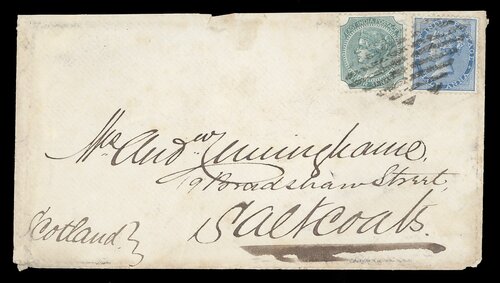 Mr Andw Cunninghame,
19 Bradshaw Street,
Saltcoats.
Scotland